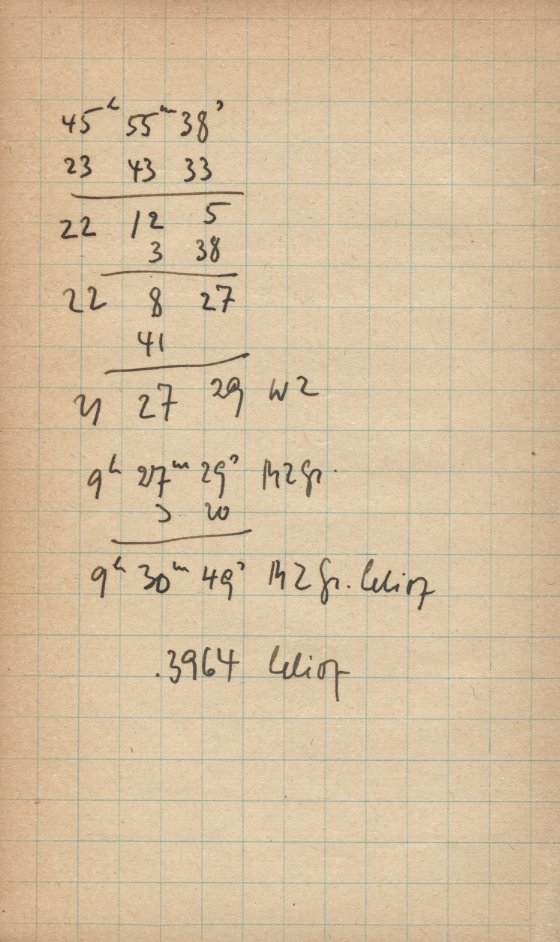 45h 55m 38s
23 43 33
22 12 5
3 38
22 8 27
41
21 27 29 WZ
9h 27m 29s MZGr.
3 20
9h 30m 49s MZGr. helioz
.3964 helioz